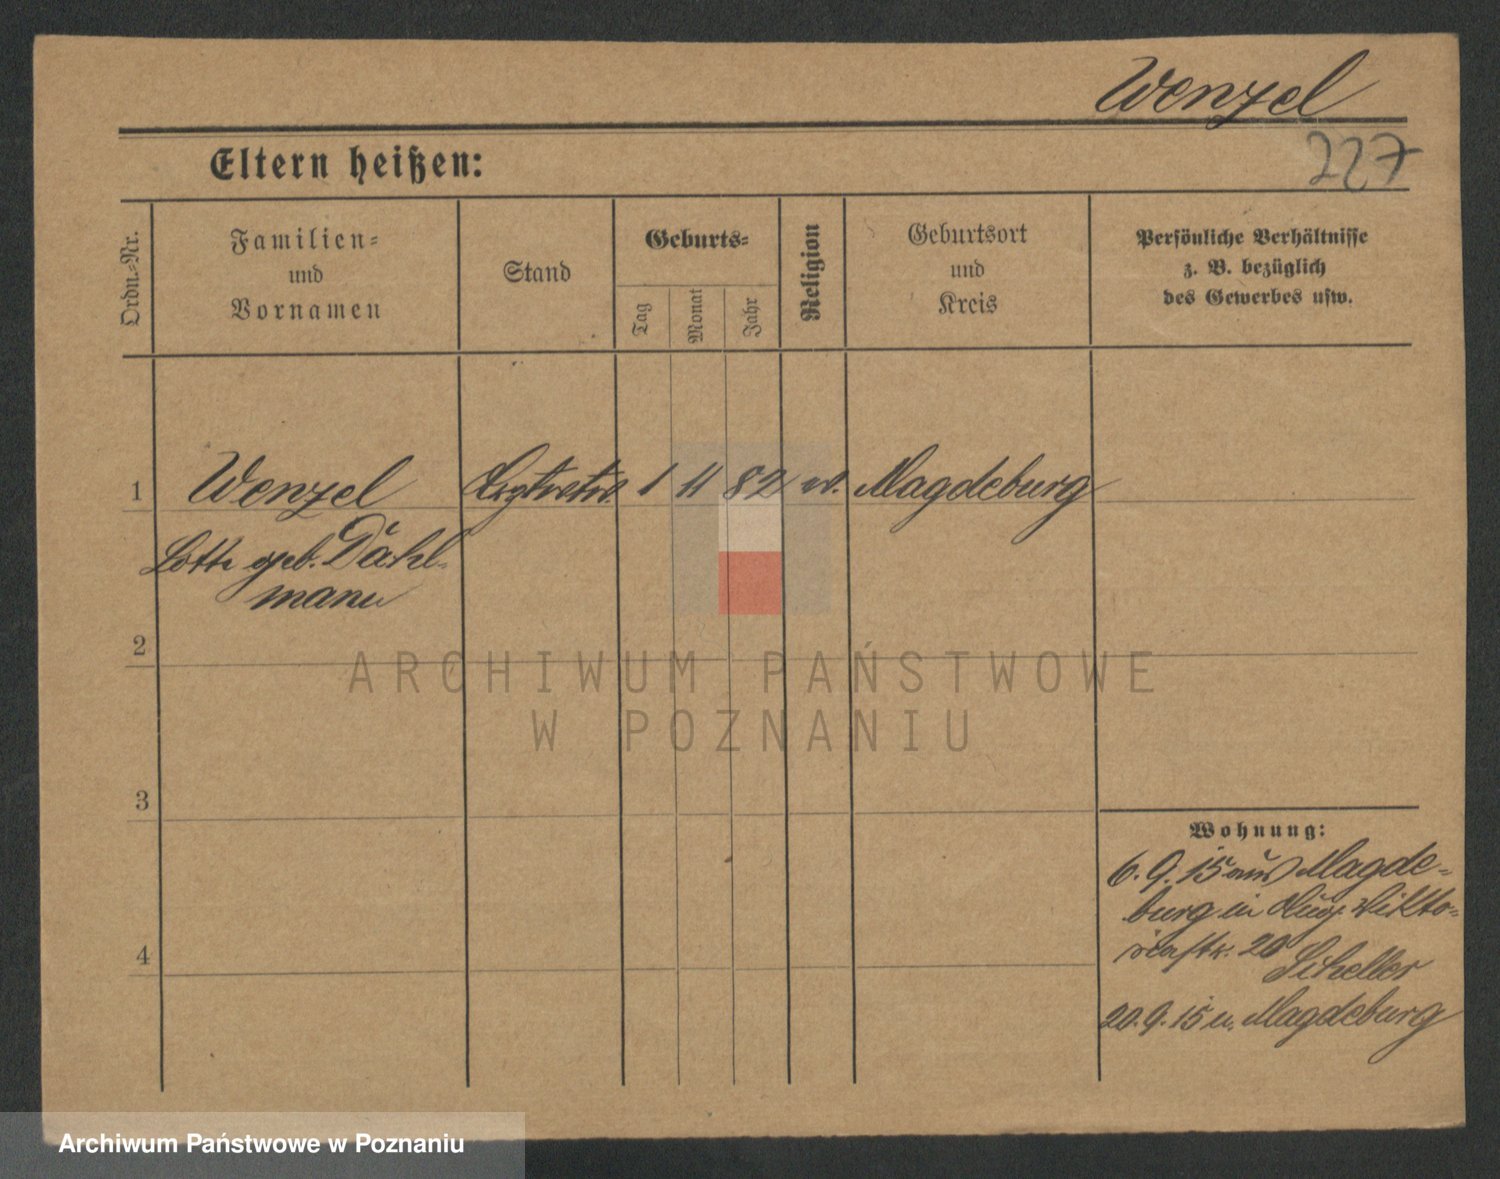 Wenzel
227
Eltern heißen:
Ordn.=Nr.
Familien=
und
Vornamen
Stand
Geburts=
Tag
Monat
Jahr
Religion
Geburtsort
und
Kreis
Persönliche Verhältnisse
z. B. bezüglich
des Gewerbes usw.
1
Wenzel
1 11 82 ev. Magdeburg
Lotte geb. Dähl-
mann
2
3
4
ARCHIWUM PAŃSTWOWE
W POZNANIU
Wohnung:
6. 9. 15 aus Magde-
burg in Aug. Vikto-
riastr. 20
Scheller
20. 9. 15 n. Magdeburg
Archiwum Państwowe w Poznaniu